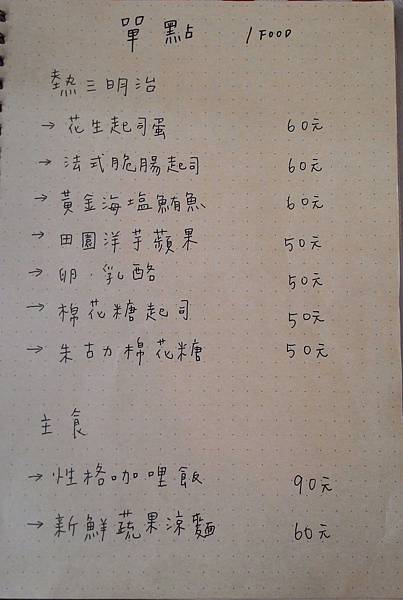 單點 / FOOD
熱三明治
→ 花生起司蛋 60元
→ 法式脆腸起司 60元
→ 黃金海塩鮪魚 60元
→ 田園洋芋蘋果 50元
→ 卵·乳酪 50元
→ 棉花糖起司 50元
→ 朱古力棉花糖 50元
主食
→ 性格咖哩飯 90元
→ 新鮮蔬果涼麵 60元